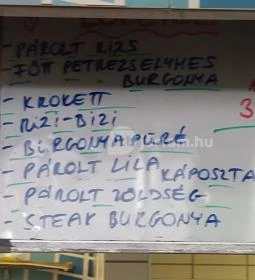 - PÁROLT RIZS
- FŐTT PETREZSELYMES
BURGONYA
- KROKETT
- RIZI-BIZI
- BURGONYAPÜRÉ
- PÁROLT LILA KÁPOSZTA
- PÁROLT ZÖLDSÉG
- STEAK BURGONYA
3